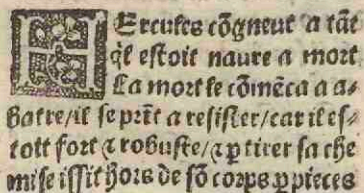 HErcules cõgneut a tãt
q̃l estoit naure a mort
La mort le cõmẽca a a⸗
batre/il se prĩt a resister/car il es⸗
toit fort ⁊ robuste/⁊ ꝑ tirer sa che
mise issit hors de sõ corps ꝑ pieces